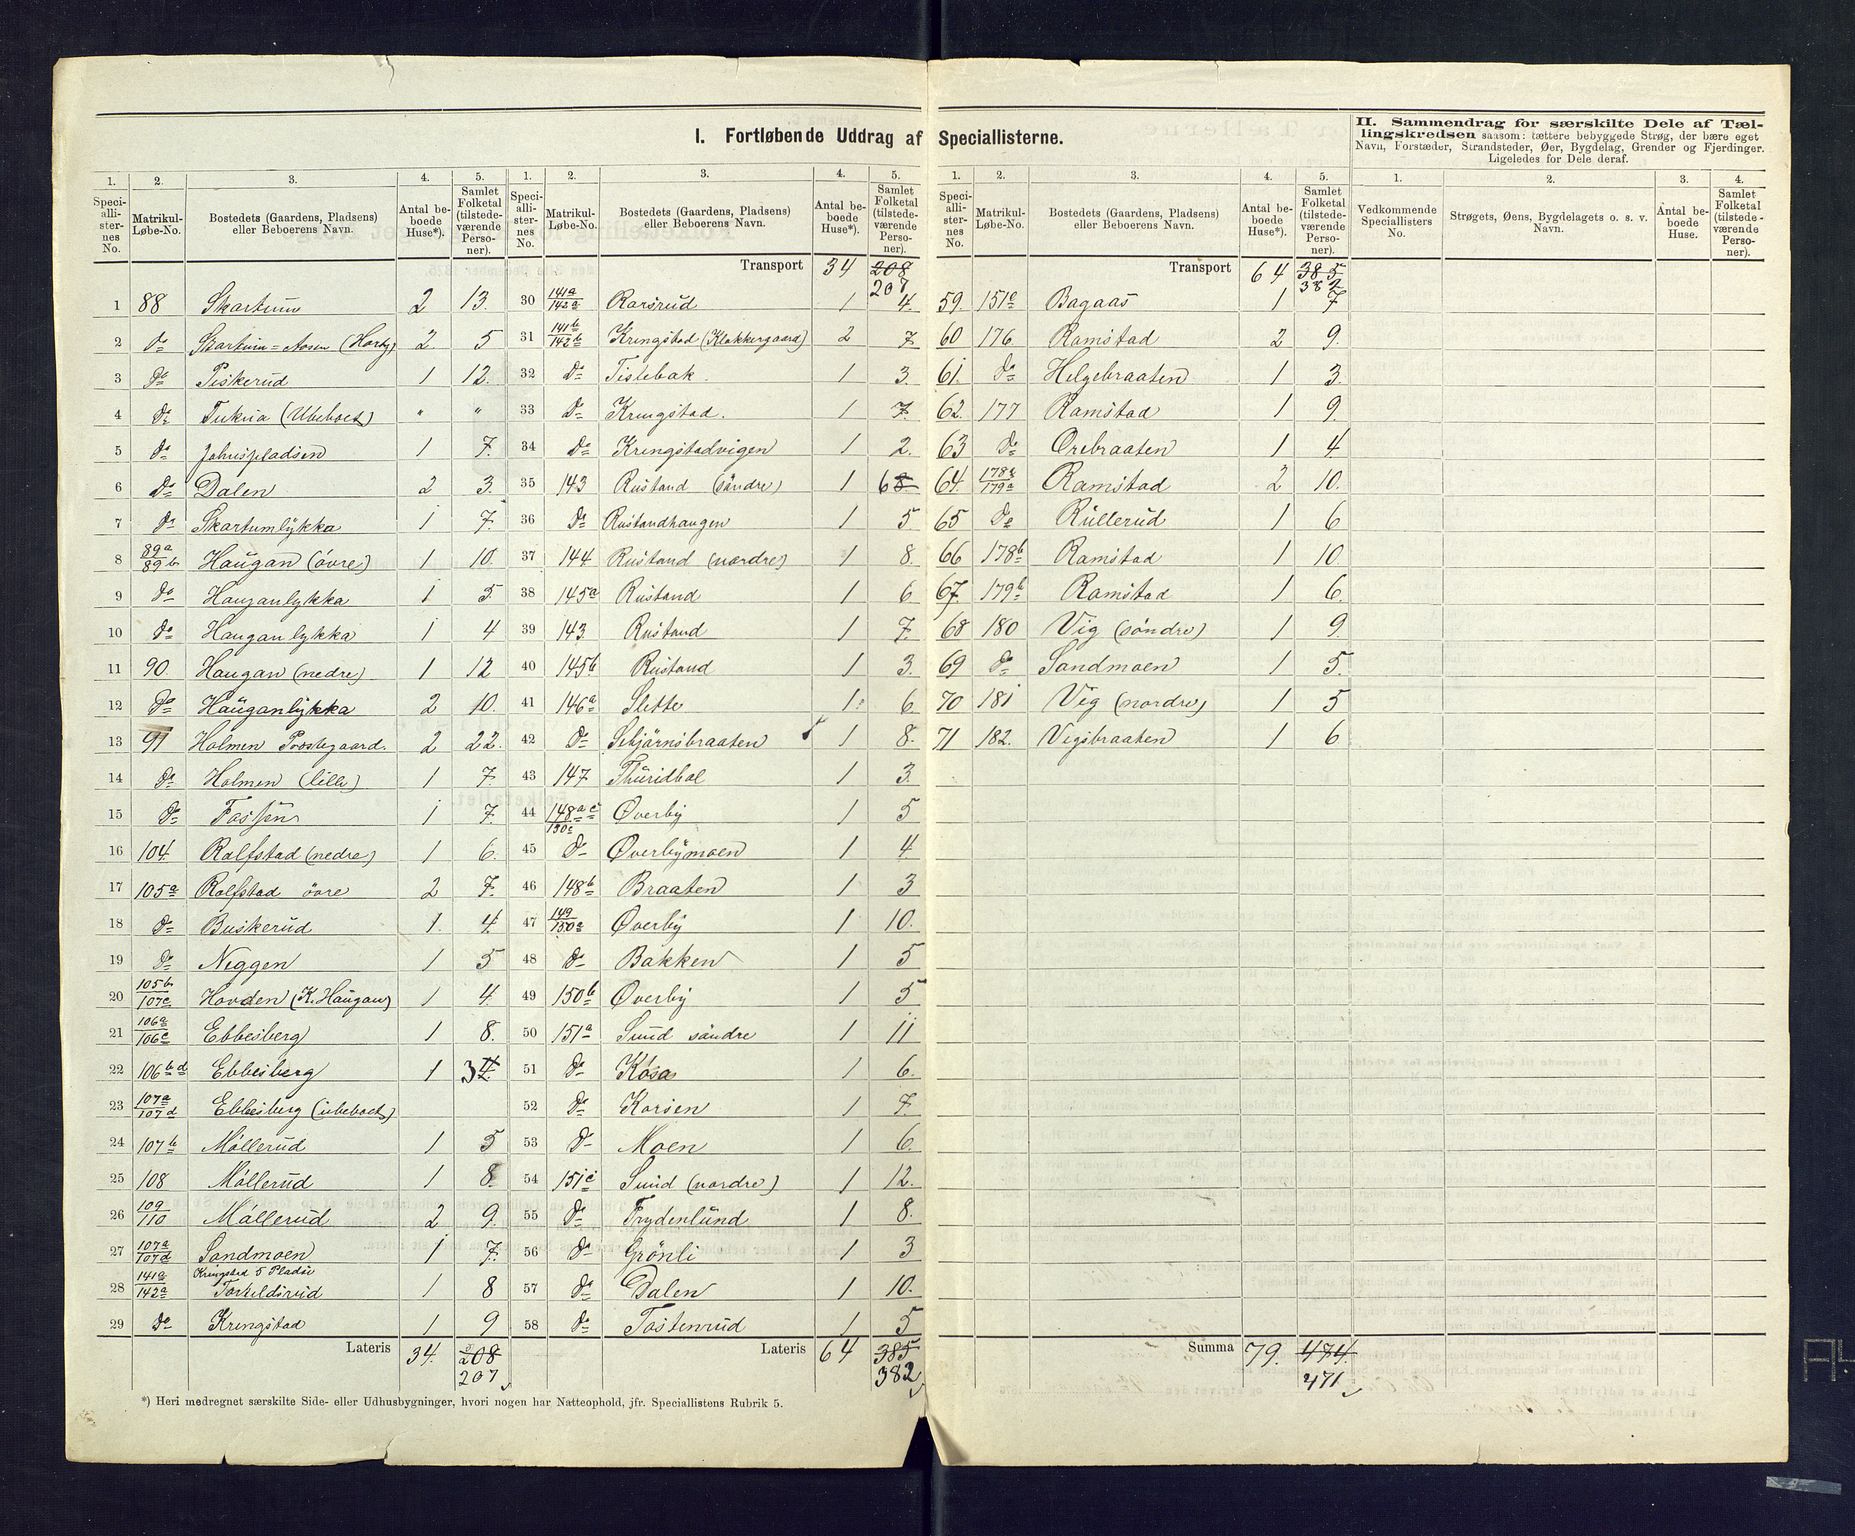 I. Fortløbende Uddrag af Speciallisterne.
II. Sammendrag for særskilte Dele af Tællingskredsen saasom: tættere bebyggede Strøg, der bære eget
Navn, Forstæder, Strandsteder, Øer, Bygdelag, Grender og Fjerdinger.
Ligeledes for Dele deraf.
1. 2. 3. 4. 5.
Speciallisternes No. Matrikul-Løbe-No. Bostedets (Gaardens, Pladsens) eller Beboerens Navn. Antal beboede Huse*). Samlet Folketal (tilstedeværende Personer).
1 88 Skartum 2 13.
2 do Skartum-Aasen (Horty) 2. 5
3 Do Piskerud 1 12.
4 do Tukria (Ubeboet) " "
5 do Johnspladsen 1 7.
6 Do Dalen 2 3.
7 do Skartumlykka 1 7.
8 89a/89b Haugan (övre) 1 10.
9 Do Hauganlykka 1 5
10 do Hauganlykka 1 4
11 90. Haugan (nedre) 1 12
12 Do Hauganlykka 2 10.
13 91 Holmen Præstegaard. 2 22.
14 do Holmen (lille) 1 7
15 do Fossen 1 7.
16 104. Rolfstad (nedre) 1 6.
17 105a Rolfstad övre 2 7.
18 do Buskerud 1. 4.
19 do Neggen 1 5
20 105b/107c Hovden (K. Haugan) 1 4.
21 106a/106c Ebbesberg 1 8.
22 106b d Ebbesberg 1 3
23 107a/107d Ebbesberg (ubeboet)
24 107b Möllerud 1 5
25 108 Möllerud 1 8
26 109/110 Möllerud 2 9.
27 107a/107d Sandmoen 1 7.
28 141a/142a Kringstad 5 Pladse Torkildsrud 1 8
29 Do Kringstad 1 9
Lateris 34. 208
207
1. 2. 3. 4. 5.
Speciallisternes No. Matrikul-Løbe-No. Bostedets (Gaardens, Pladsens) eller Beboerens Navn. Antal beboede Huse*). Samlet Folketal (tilstedeværende Personer).
Transport 34 208
207
30 141a/142a Rorsrud 1 4.
31 141b/142b Kringstad (Klokkergaard) 2 7.
32 Do Tistebak. 1 3.
33 Do Kringstad. 1 7.
34 Do Kringstadvigen 1 2.
35 143 Rustand (söndre) 1 6
36 Do Rustandhaugen 1 5.
37 144 Rustand (nordre) 1 8.
38 145a Rustand 1 6
39 143 Rustand 1 7.
40 145b Rustand 1 3.
41 146a Slette 1 6.
42 do Schjørnsbraaten 1 8.
43 147 Thuridbøl 1 3.
44 148a c/150c Øverby 1 5
45 do Øverbymoen 1 4.
46 148b Braaten 1 3
47 149/150a Øverby 1 10.
48 do Bakken 1 5
49 150b Øverby 1 5
50 151a Sund söndre 1 11
51 do Kosa 1 6.
52 do Korsen 1 7
53 do Moen 1 6.
54 151c Sund (nordre) 1 12.
55 do Frydenlund 1 8.
56 do Grönli 1 3
57 do Dalen 1 10.
58 do Tostenrud 1 5
Lateris 64 385
382
1. 2. 3. 4. 5.
Speciallisternes No. Matrikul-Løbe-No. Bostedets (Gaardens, Pladsens) eller Beboerens Navn. Antal beboede Huse*). Samlet Folketal (tilstedeværende Personer).
Transport 64 385
382
59. 151e Bagaas 1 7
60 176. Ramstad 2 9.
61. do Helgebraaten 1 3.
62. 177 Ramstad 1 9.
63 do Orebraaten 1 4
64. 178a/179a Ramstad 2 10.
65 do Rullerud 1 6
66 178b Ramstad 1 10
67. 179b Ramstad 1 6.
68 180 Vig (söndre) 1 9.
69 do Sandmoen 1 5.
70 181 Vig (nordre) 1 5
71 182. Vigsbraaten 1 6
Summa 79. 474.
471
1. 2. 3. 4.
Vedkommende Speciallisters No. Strøgets, Øens, Bygdelagets o. s. v. Navn. Antal beboede Huse. Samlet Folketal (tilstedeværende Personer).
*) Heri medregnet særskilte Side- eller Udhusbygninger, hvori nogen har Natteophold, jfr. Speciallistens Rubrik 5.